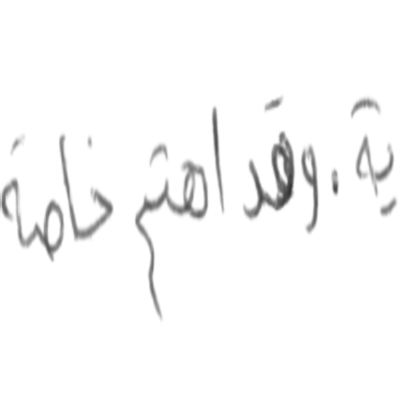 ية . وقد اهتم خاصة